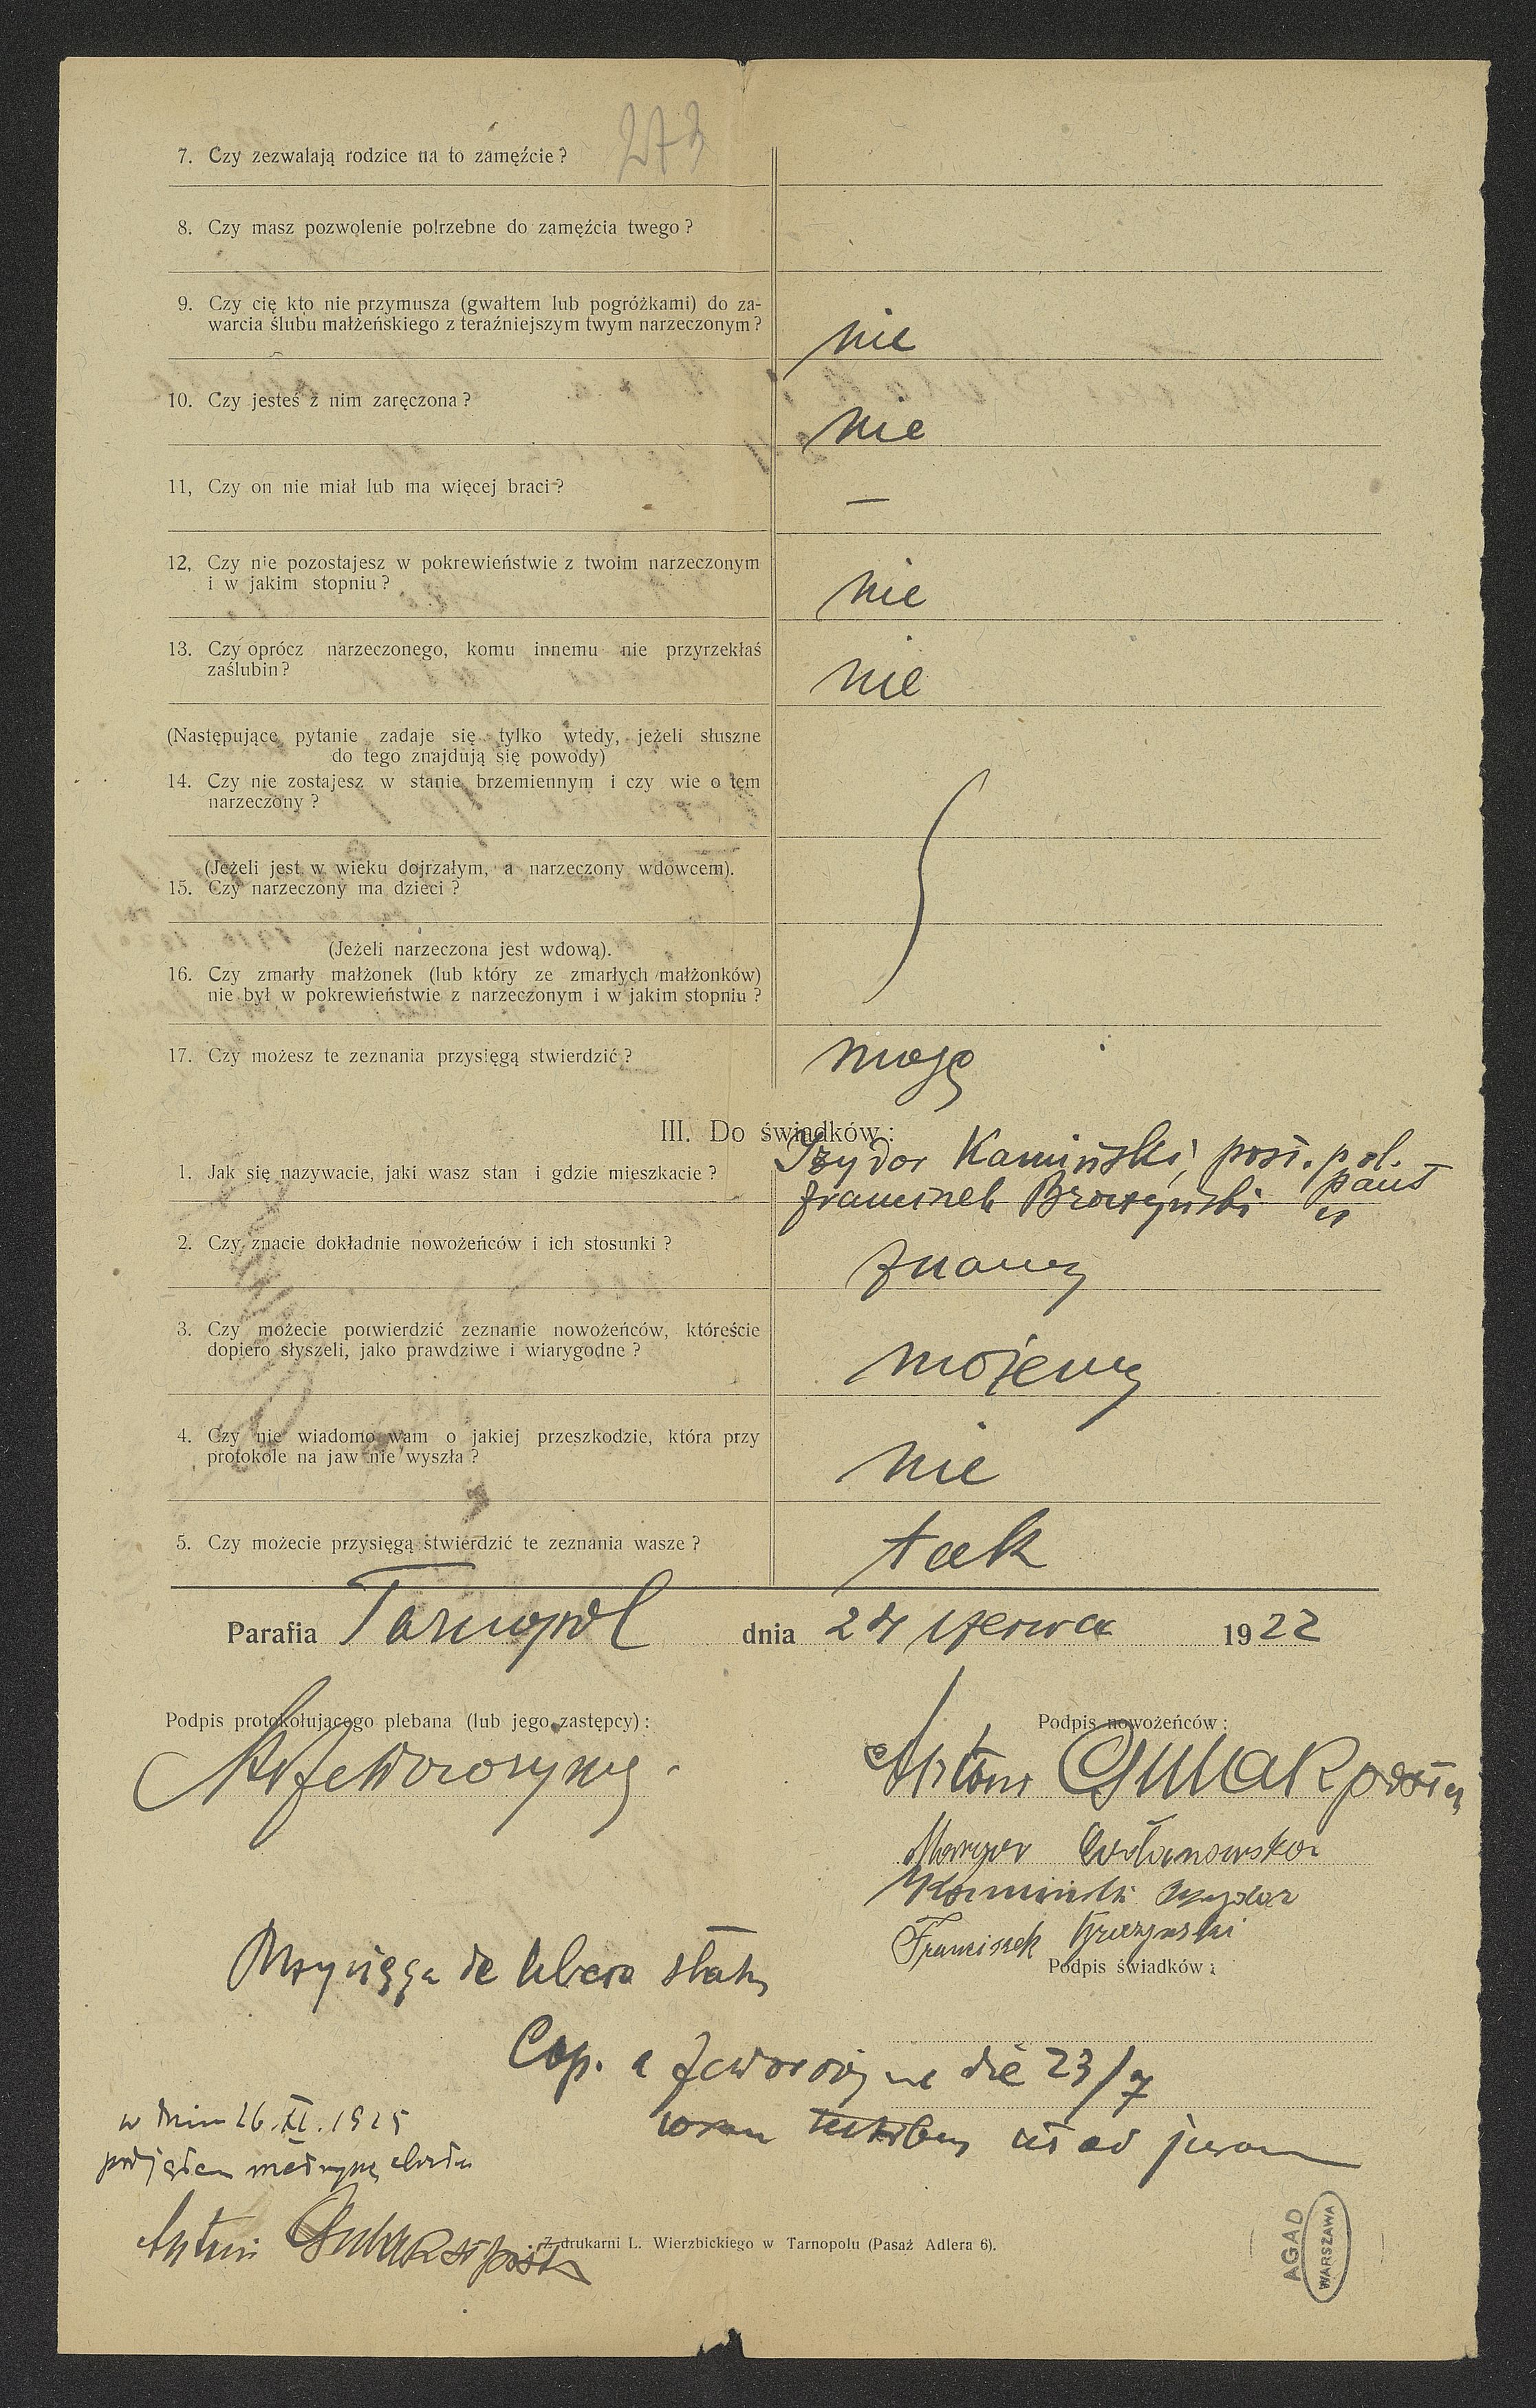 273
7. Czy zezwalają rodzice na to zamęźcie?
8. Czy masz pozwolenie potrzebne do zamęźcia twego?
9. Czy cię kto nie przymusza (gwałtem lub pogróżkami) do za-
warcia ślubu małżeńskiego z teraźniejszym twym narzeczonym?
nie
10. Czy jesteś z nim zaręczona?
nie
11, Czy on nie miał lub ma więcej braci?
—
12, Czy nie pozostajesz w pokrewieństwie z twoim narzeczonym
i w jakim stopniu?
nie
13. Czy oprócz narzeczonego, komu innemu nie przyrzekłaś
zaślubin?
nie
(Następujące pytanie zadaje się tylko wtedy, jeżeli słuszne
do tego znajdują się powody)
14. Czy nie zostajesz w stanie brzemiennym i czy wie o tem
narzeczony?
(Jeżeli jest w wieku dojrzałym, a narzeczony wdowcem).
15. Czy narzeczony ma dzieci?
(Jeżeli narzeczona jest wdową).
16. Czy zmarły małżonek (lub który ze zmarłych małżonków)
nie był w pokrewieństwie z narzeczonym i w jakim stopniu?
17. Czy możesz te zeznania przysięgą stwierdzić?
mogę
III. Do świadków:
1. Jak się nazywacie, jaki wasz stan i gdzie mieszkacie?
Izydor Kamiński, post. pol.
Franciszek państ
2. Czy znacie dokładnie nowożeńców i ich stosunki?
znamy
3. Czy możecie potwierdzić zeznanie nowożeńców, któreście
dopiero słyszeli, jako prawdziwe i wiarygodne?
możemy
4. Czy nie wiadomo wam o jakiej przeszkodzie, która przy
protokole na jaw nie wyszła?
nie
5. Czy możecie przysięgą stwierdzić te zeznania wasze?
tak
Parafia Tarnopol dnia 24 czerwca 1922
Podpis protokołującego plebana (lub jego zastępcy):
Podpis nowożeńców:
Antoni
Marya Wolanowska
Kamiński Izydor
Franciszek
Podpis świadków:
Przysięga de libero statu
Cop. a die 23/7
w dniu 26.XI.1925
podjąłem metrykę chrztu
Antoni
Z drukarni L. Wierzbickiego w Tarnopolu (Pasaż Adlera 6).
AGAD
WARSZAWA